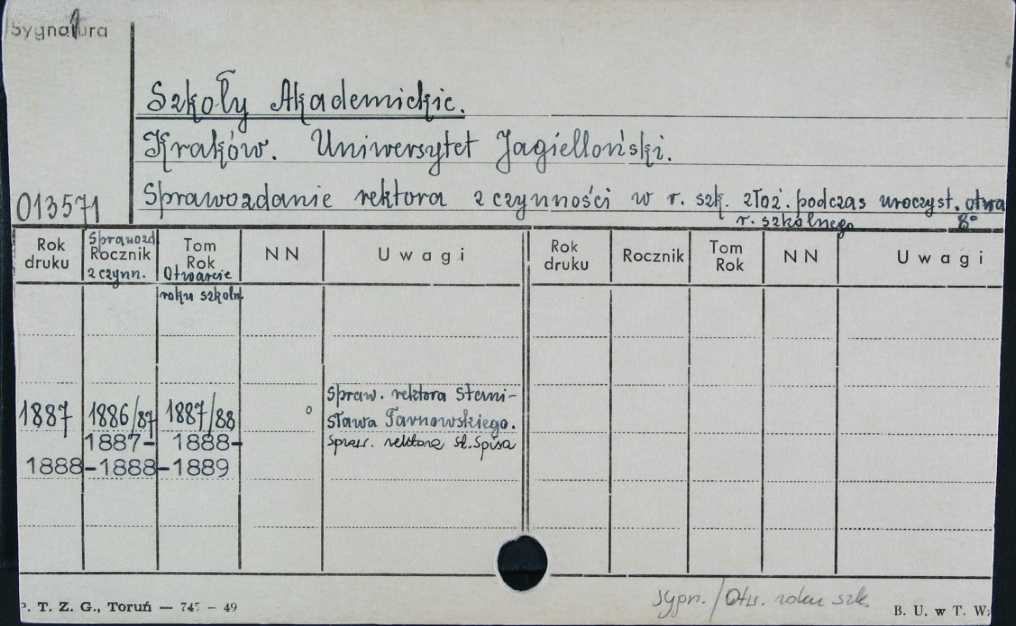 Sygnatura
Szkoły Akademickie.
Kraków. Uniwersytet Jagielloński.
013571 Sprawozdanie rektora z czynności w r. szk. złoż. podczas uroczyst. otwa
r. szkolnego 8°
Rok druku Sprawozd. Rocznik z czynn. Tom Rok Otwarcie roku szkoln. NN Uwagi Rok druku Rocznik Tom Rok NN Uwagi
Spraw. rektora Stani-
1887 1886/87 1887/88 sława Tarnowskiego.
1887- 1888- Spraw. rektora St. Spisa
1888-1888-1889
P. T. Z. G., Toruń — 745 – 49
sygn. / Otw. roku szk.
B. U. w T. W.